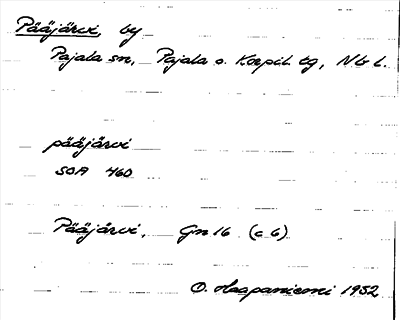 Pääjärvi, by
Pajala sn, Pajala o. Korpil. tg, Nb l.
pääjärvi
SOA 460
Pääjärvi, Gn 16 (c 6)
O. Haapaniemi 1952